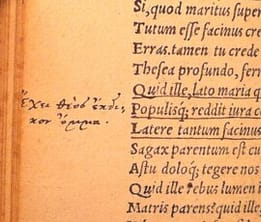 Si, quod maritus supe
Tutum esse facinus cre
Erras. tamen tu crede
Thesea profundo, ferr
Quid ille, lato maria q
Ἔχει θεὸς ἔκδι-
Populisq; reddit iura c
κον ὄμμα.
Latere tantum facinus
Sagax parentum est cu
Astu doloq; tegere nos
Quid ille rebus lumen i
Matris parens? quid il